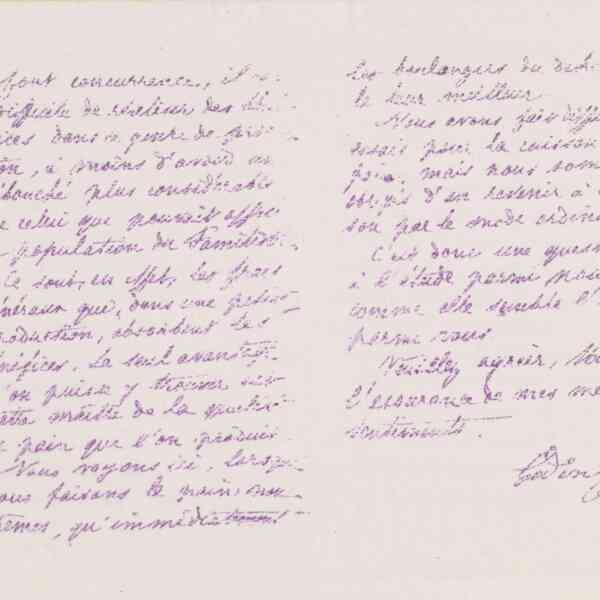 font concurrence, il
difficile de réaliser des
ices dans ce genre de
on, à moins d'avoir un
débouché plus considérable
e celui que pourrait offrir
population du Familist
Ce sont, en effet, les frais
énéraux qui, dans une petite
production, absorbent les
bénéfices. Le seul avantage
l'on puisse y trouver
cette matière de la qualité
pain que l'on produit
Nous voyons ici, lorsque
nous faisons le pain, nou
êmes, qu'immédiatement
les boulangers du de
le leur meilleur
Nous avons fait diff
essais pour la cuisson
pain, mais nous som
obligés d'en revenir à
son par le mode ordin
C'est donc une ques
à l'étude parmi nous
comme elle semble l'
parmi vous
Veuillez agréer,
l'assurance de mes me
sentiments.
Godin